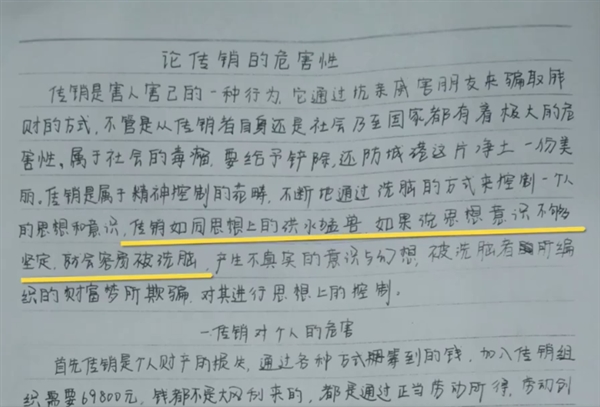 论传销的危害性
传销是害人害己的一种行为,它通过坑亲戚害朋友来骗取钱
财的方式,不管是从传销者自身还是社会乃至国家都有着极大的危
害性,属于社会的毒瘤,要给予铲除,还防城港这片净土一份美
丽。传销是属于精神控制的范畴,不断地通过洗脑的方式来控制一个人
的思想和意识,传销如同思想上的洪水猛兽 如果说思想意识不够
坚定,就会容易被洗脑,产生不真实的意识与幻想,被洗脑者所编
织的财富梦所欺骗,对其进行思想上的控制。
一传销对个人的危害
首先传销是个人财产的损失,通过各种方式拼拿到的钱,加入传销组
织需要69800元。钱都不是大风刮来的,都是通过正当劳动所得,劳动创